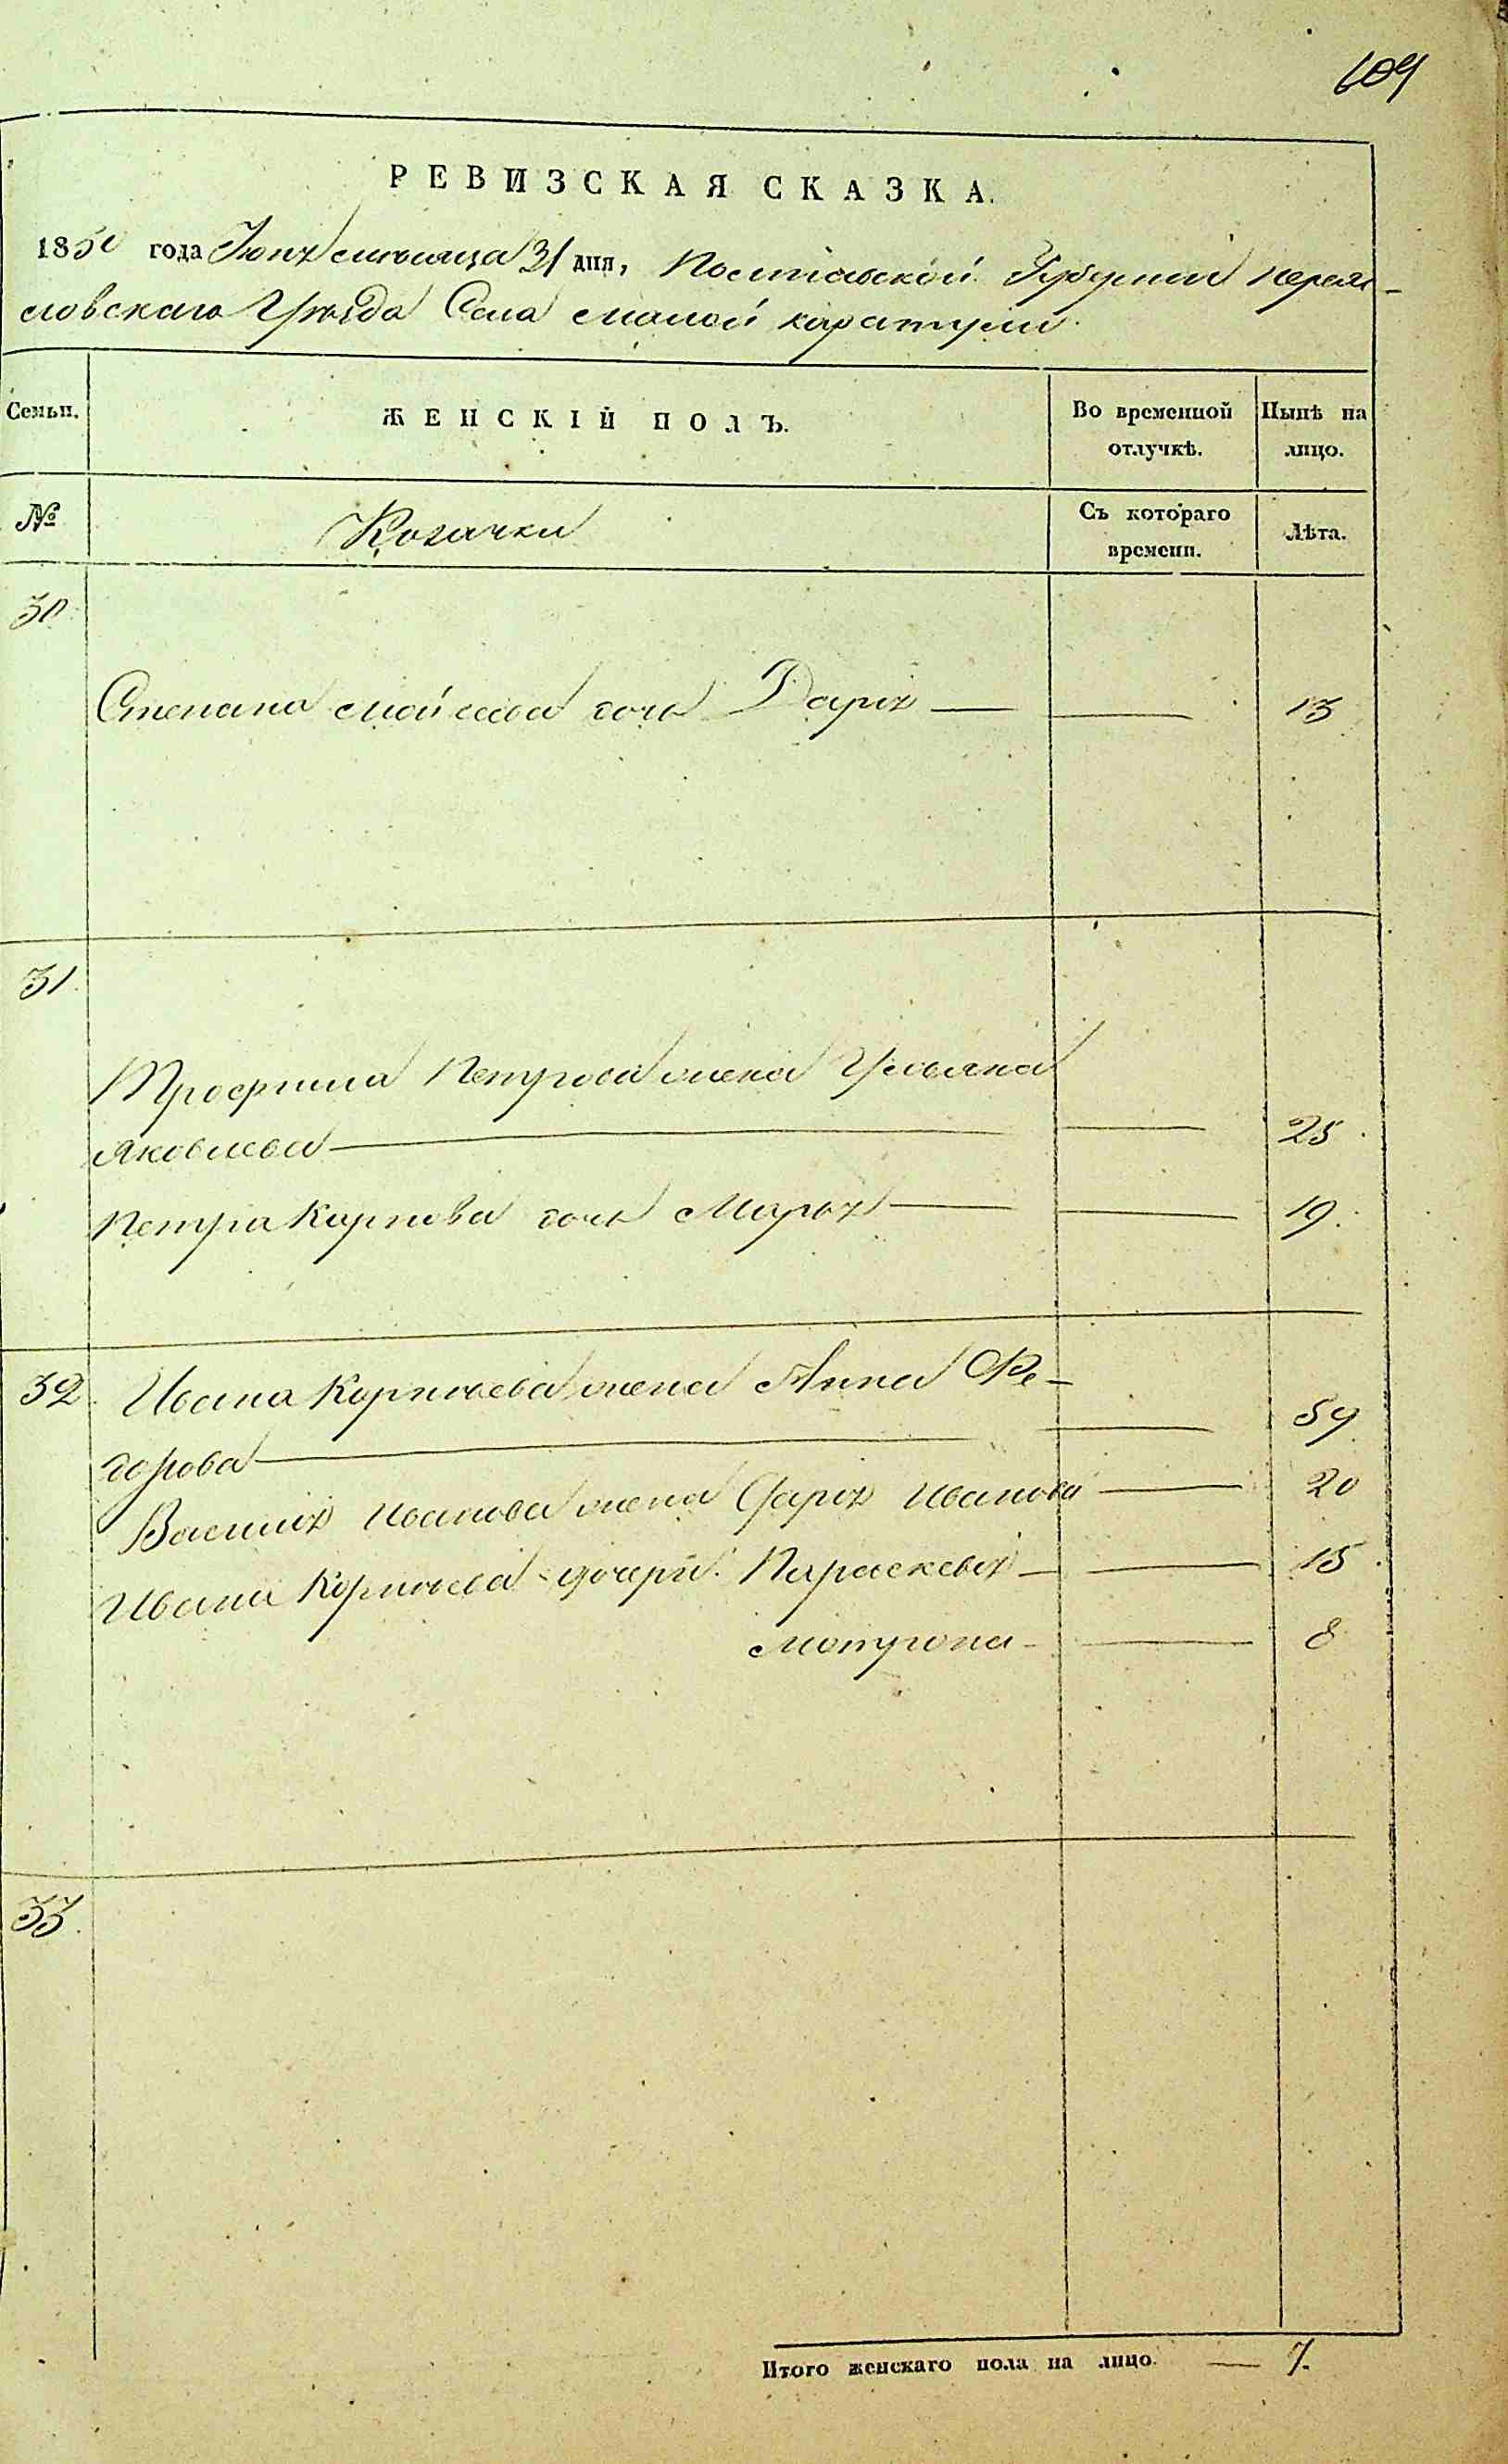 609
РЕВИЗСКАЯ СКАЗКА.
1850 года Іюля месяца 31 дня, Полтавской Губерніи Перея-
словскаго Уѣзда Села малой каратули.
Семьи. ЖЕНСКІЙ ПОЛЪ. Во временной отлучкѣ. Нынѣ на лицо.
№ Козачки Съ котораго времени. Лѣта.
30.
Степана Мойсеева дочь Дарія — — 13
31.
Трофима Петрова жена Ульяна
Яковлева — — 25.
Петра Карпова дочь Марья — — 19.
32. Ивана Корнѣева жена Анна Фе-
дорова — — 59
Василія Иванова жена Дарія Иванова — 20
Ивана Корнѣева дочери. Параскевія — — 15.
Мотрона — — 8
33.
Итого женскаго пола на лицо. — 7.